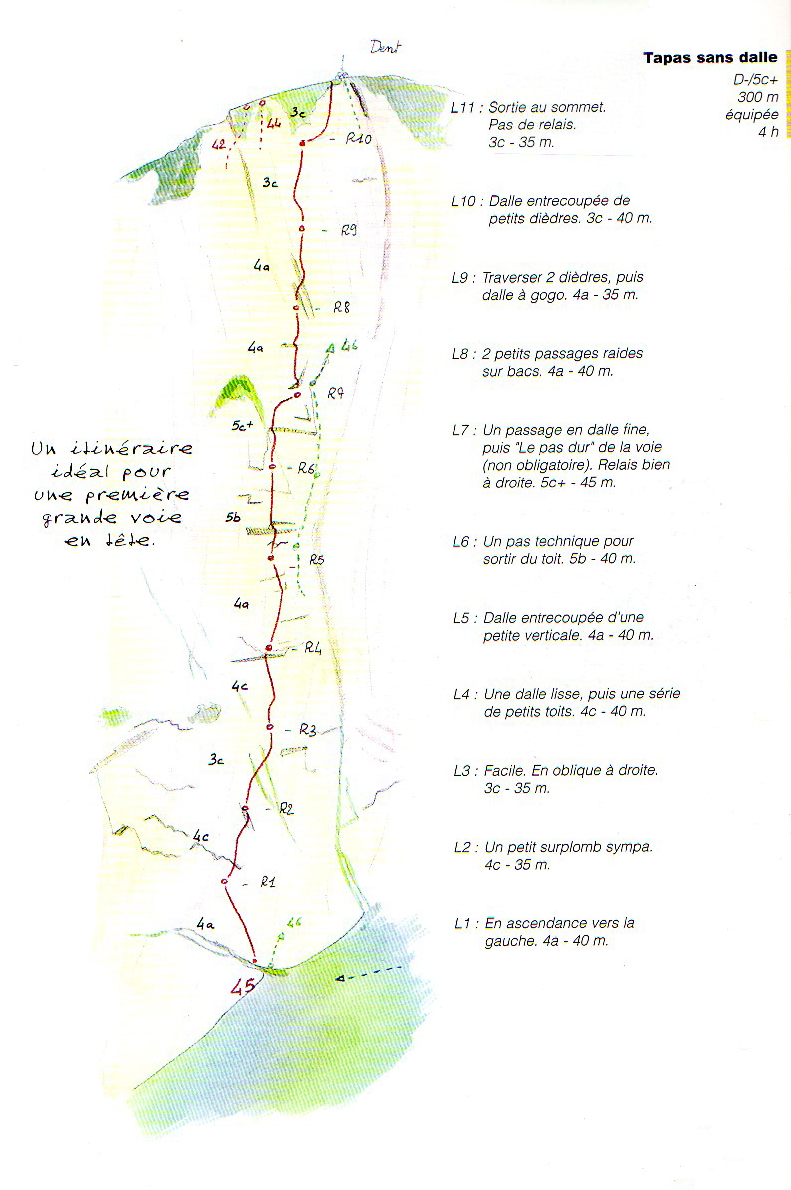 Dent
Tapas sans dalle
D-/5c+
300 m
équipée
4 h
L11 : Sortie au sommet.
Pas de relais.
3c - 35 m.
L10 : Dalle entrecoupée de
petits dièdres. 3c - 40 m.
L9 : Traverser 2 dièdres, puis
dalle à gogo. 4a - 35 m.
L8 : 2 petits passages raides
sur bacs. 4a - 40 m.
L7 : Un passage en dalle fine,
puis "Le pas dur" de la voie
(non obligatoire). Relais bien
à droite. 5c+ - 45 m.
L6 : Un pas technique pour
sortir du toit. 5b - 40 m.
L5 : Dalle entrecoupée d'une
petite verticale. 4a - 40 m.
L4 : Une dalle lisse, puis une série
de petits toits. 4c - 40 m.
L3 : Facile. En oblique à droite.
3c - 35 m.
L2 : Un petit surplomb sympa.
4c - 35 m.
L1 : En ascendance vers la
gauche. 4a - 40 m.
Un itinéraire
idéal pour
une première
grande voie
en tête.
3c
44
42
R10
3c
R9
4a
R8
4a
46
R7
5c+
R6
5b
R5
4a
R4
4c
R3
3c
R2
4c
R1
4a
46
45